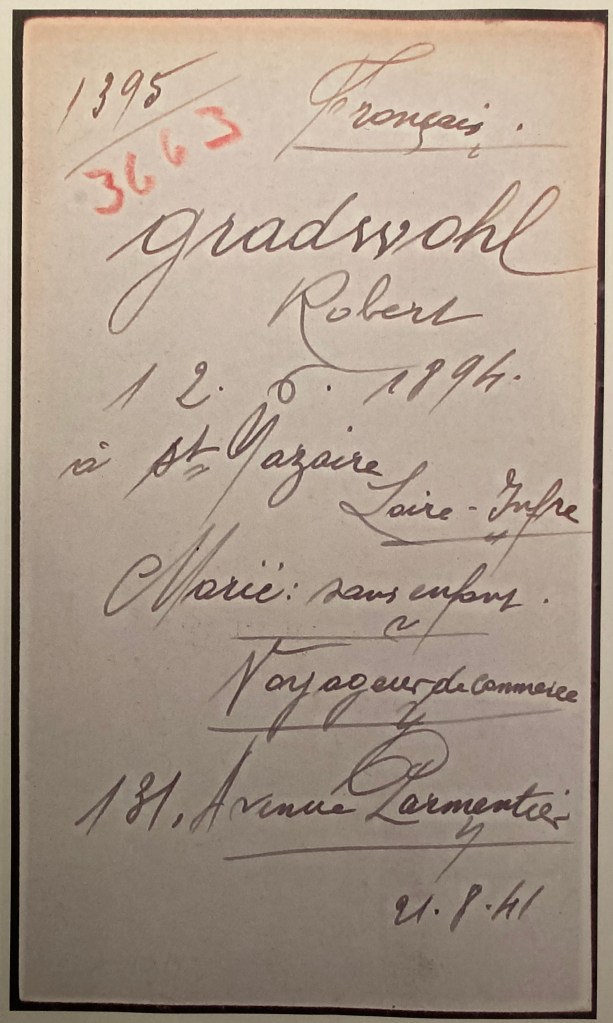 1395
3663
Français.
gradwohl
Robert
12. 6. 1894.
à St Nazaire
Loire-Infre
Marié: sans enfant.
Voyageur de commerce
131, Avenue Parmentier
21.8.41